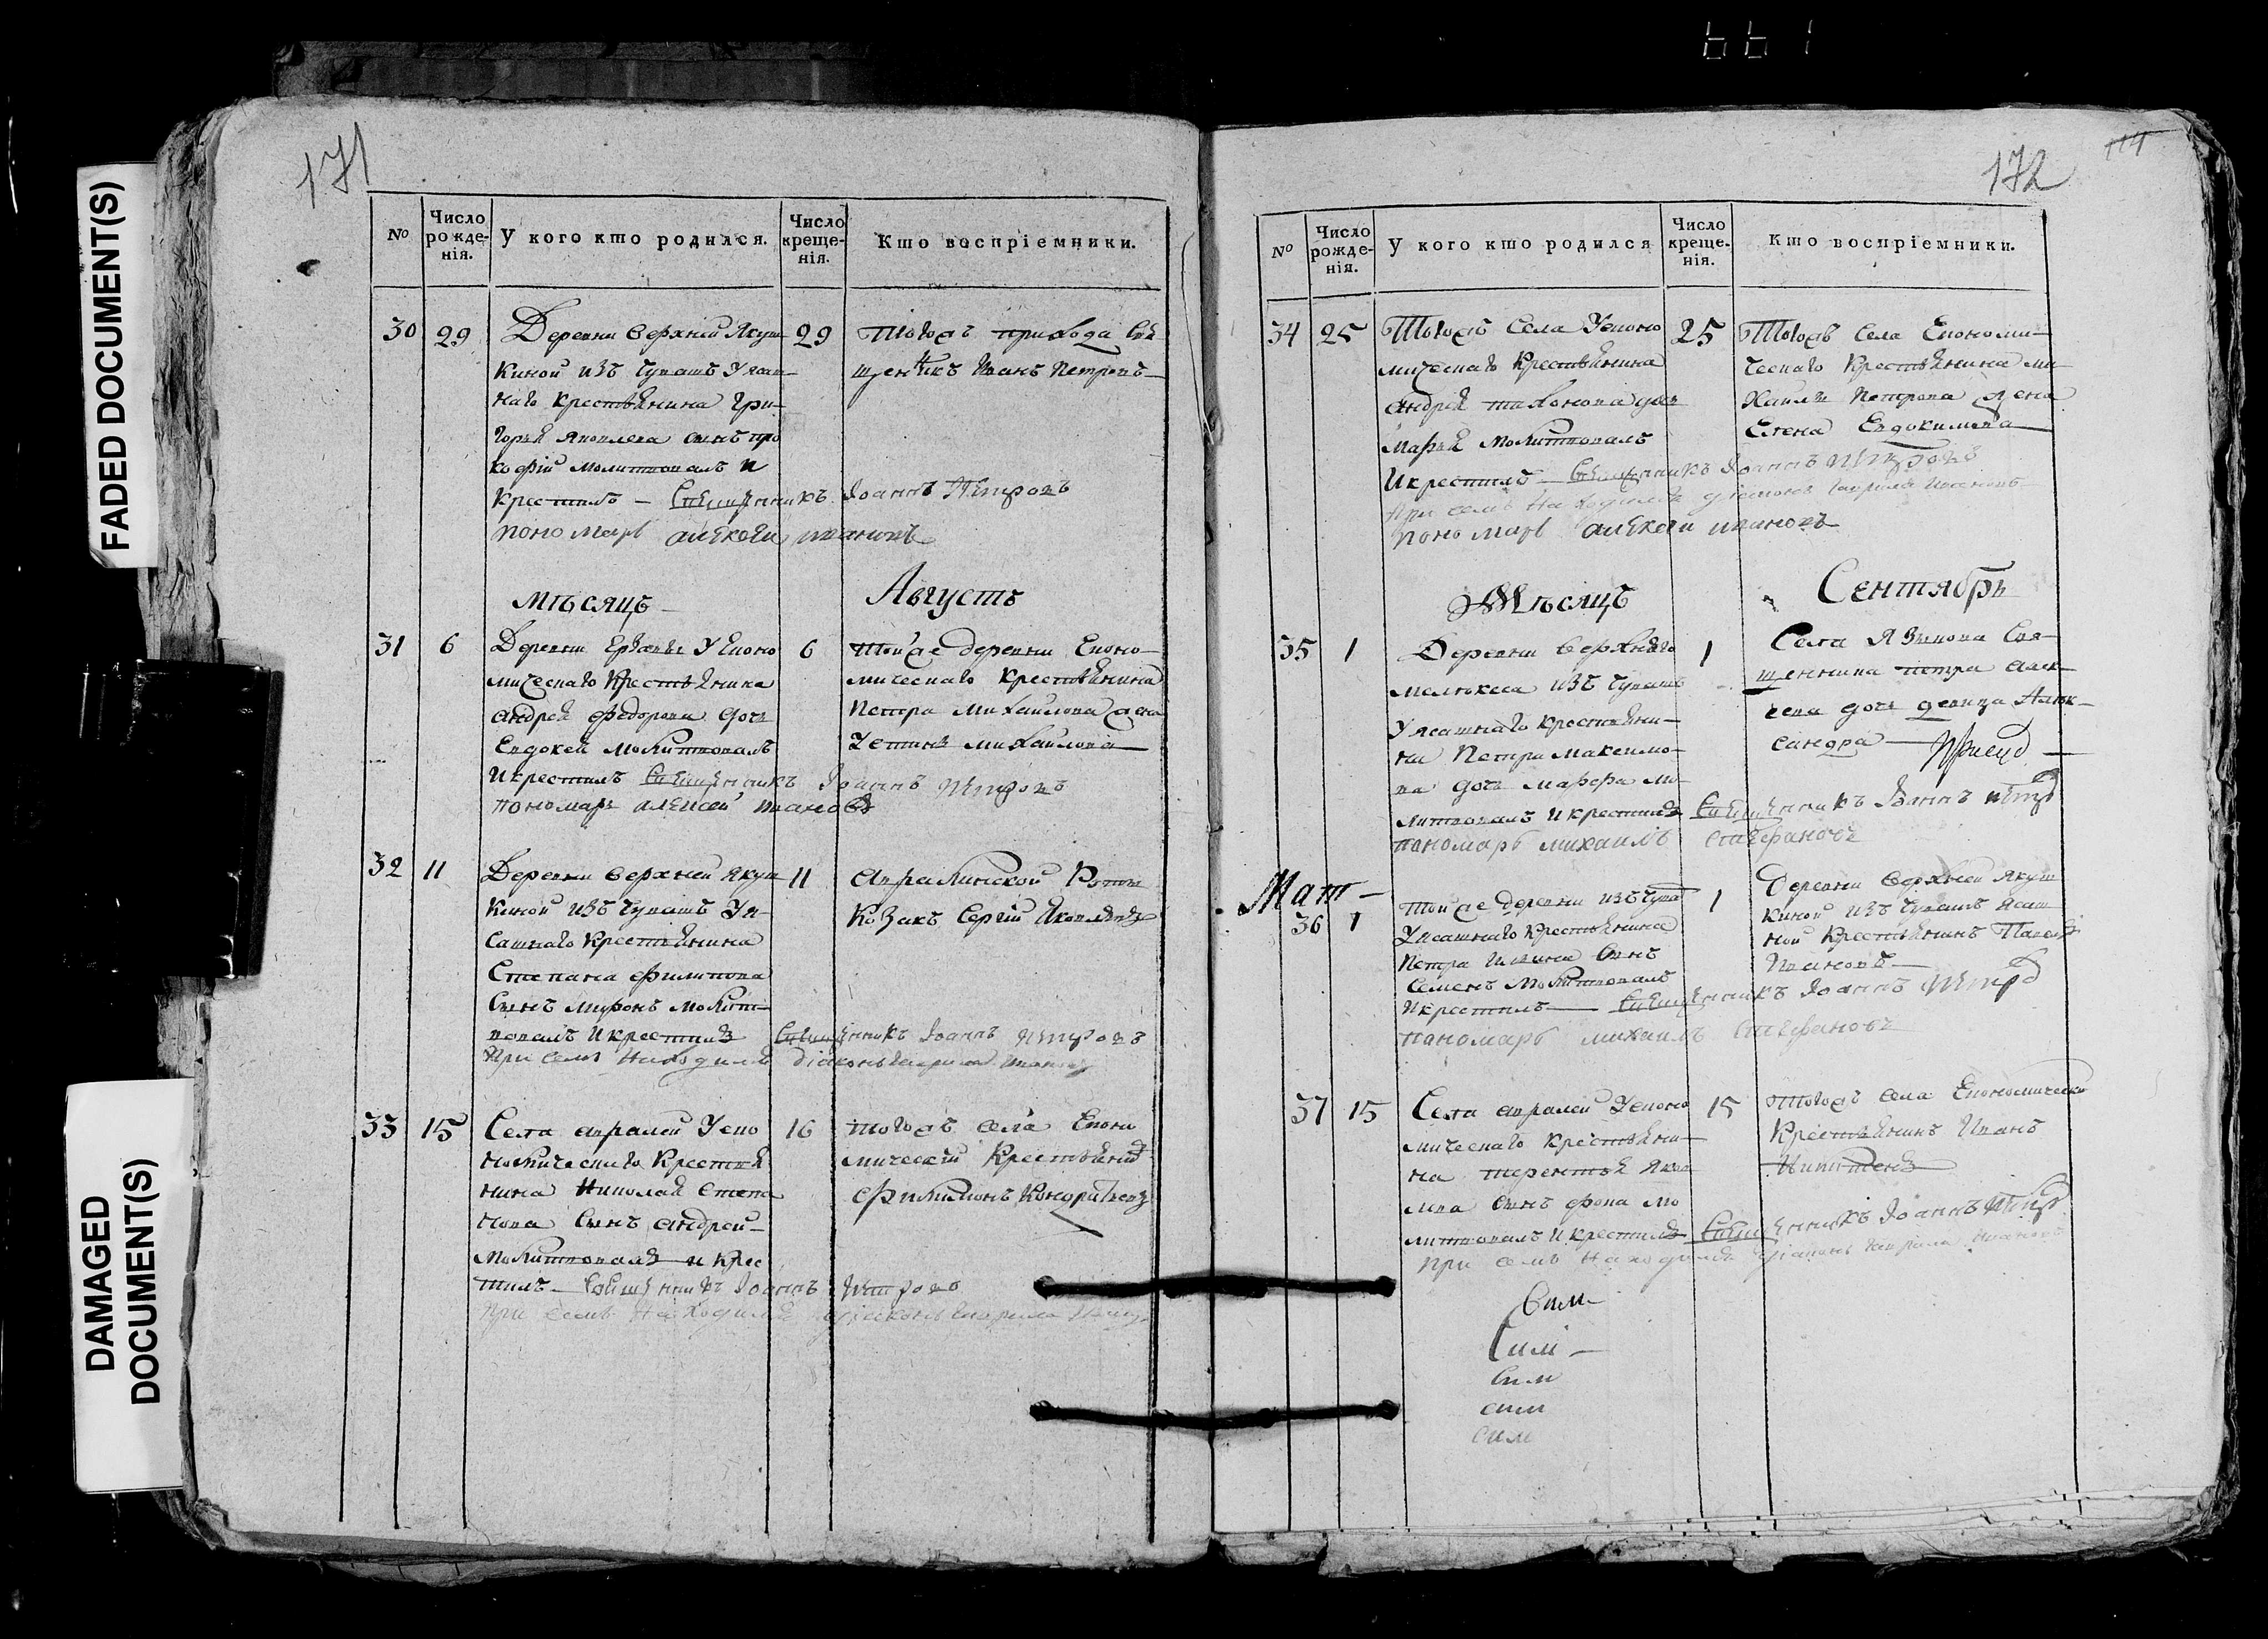 FADED DOCUMENT(S)
DAMAGED
DOCUMENT(S)
171
№
Число рожденія.
У кого кто родился.
Число крещенія.
Кто воспріемники.
30
29
Деревни верхней Якуш
киной изъ Чувашъ У ясаш
наго крестьянина Гри-
горья Яковлева сынъ про
кофій молитвовалъ и
крестилъ – Священникъ Іоаннъ Петровъ
пономарь алексеи ивановъ
29
Тогожъ прихода Свя
щенникъ Иванъ Петровъ
мѣсяцъ
Августъ
31
6
Деревни У Еконо
мическаго Крестьянина
андрея федорова дочь
Евдокея молитвовалъ
и крестилъ Священникъ Іоаннъ Петровъ
пономарь алексеи ивановъ
6
тойже деревни Еконо-
мическаго крестьянина
Петра михаилова жена
михаилова
32
11
Деревни верхней якуш
киной изъ чувашъ У я-
сашнаго крестьянина
Степана филипова
сынъ миронъ молит-
вовалъ и крестилъ Священникъ Іоаннъ Петровъ
При семъ находился діаконъ гаврила ивановъ
11
Козакъ Сергій Яковлевъ
33
15
Села У Еко
номическаго Крестья
нина Николая степа
нова сынъ андрей
молитвовалъ и крес
тилъ – Священникъ Іоаннъ Петровъ
при семъ находился діаконъ гаврила
16
тогожъ села Еконо
мическій Крестьянинъ
филимонъ
172
114
№
Число рожденія.
У кого кто родился
Число крещенія.
Кто воспріемники.
34
25
Тогожъ Села У еконо
мическаго Крестьянина
андрея тихонова дочь
марья молитвовалъ
и крестилъ – Священникъ Іоаннъ Петровъ
При семъ находился діаконъ гаврила ивановъ
пономарь алексеи ивановъ
25
Тогожъ села Економи-
ческаго Крестьянина ми-
хаила Петрова жена
Елена Евдокимова
Мѣсяцъ
Сентябрь
35
1
Деревни верхняго
мелекеса изъ чувашъ
У ясашнаго крестьяни-
на Петра максимо-
ва дочь марфа мо-
литвовалъ и крестилъ Священникъ Іоаннъ Петров
пономарь михаилъ стефановъ
1
Села Языкова Свя-
щенника петра алек-
сеева дочь девица Алек-
сандра
Мат-
36
1
тойже деревни изъ чува
У ясашнаго крестьянина
Петра Ильина сынъ
Семенъ молитвовалъ
и крестилъ – Священникъ Іоаннъ Петров
пономарь михаилъ стефановъ
1
Деревни верхней якуш
киной изъ чувашъ ясаш
ной Крестьянинъ
Ивановъ
37
15
Села У еконо
мическаго крестьяни-
на терентья яков
лева сынъ фома мо
литвовалъ и крестилъ Священникъ Іоаннъ Петров
При семъ находился діаконъ гаврила ивановъ
15
Тогожъ села Економически
Крестьянинъ Иванъ